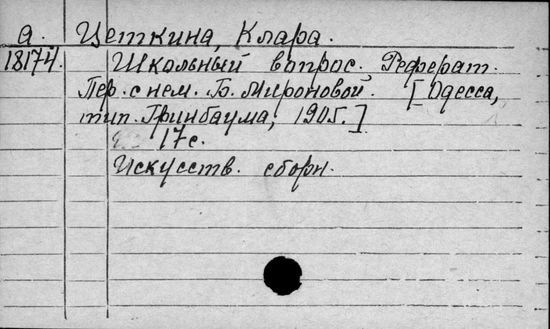 а. Цеткина, Клара.
18174. Школьный вопрос. Реферат.
Пер. с нем. Б. Мироновой. [Одесса,
тип. Гринбаума, 1905г.]
17 с.
Искусств. сборн.